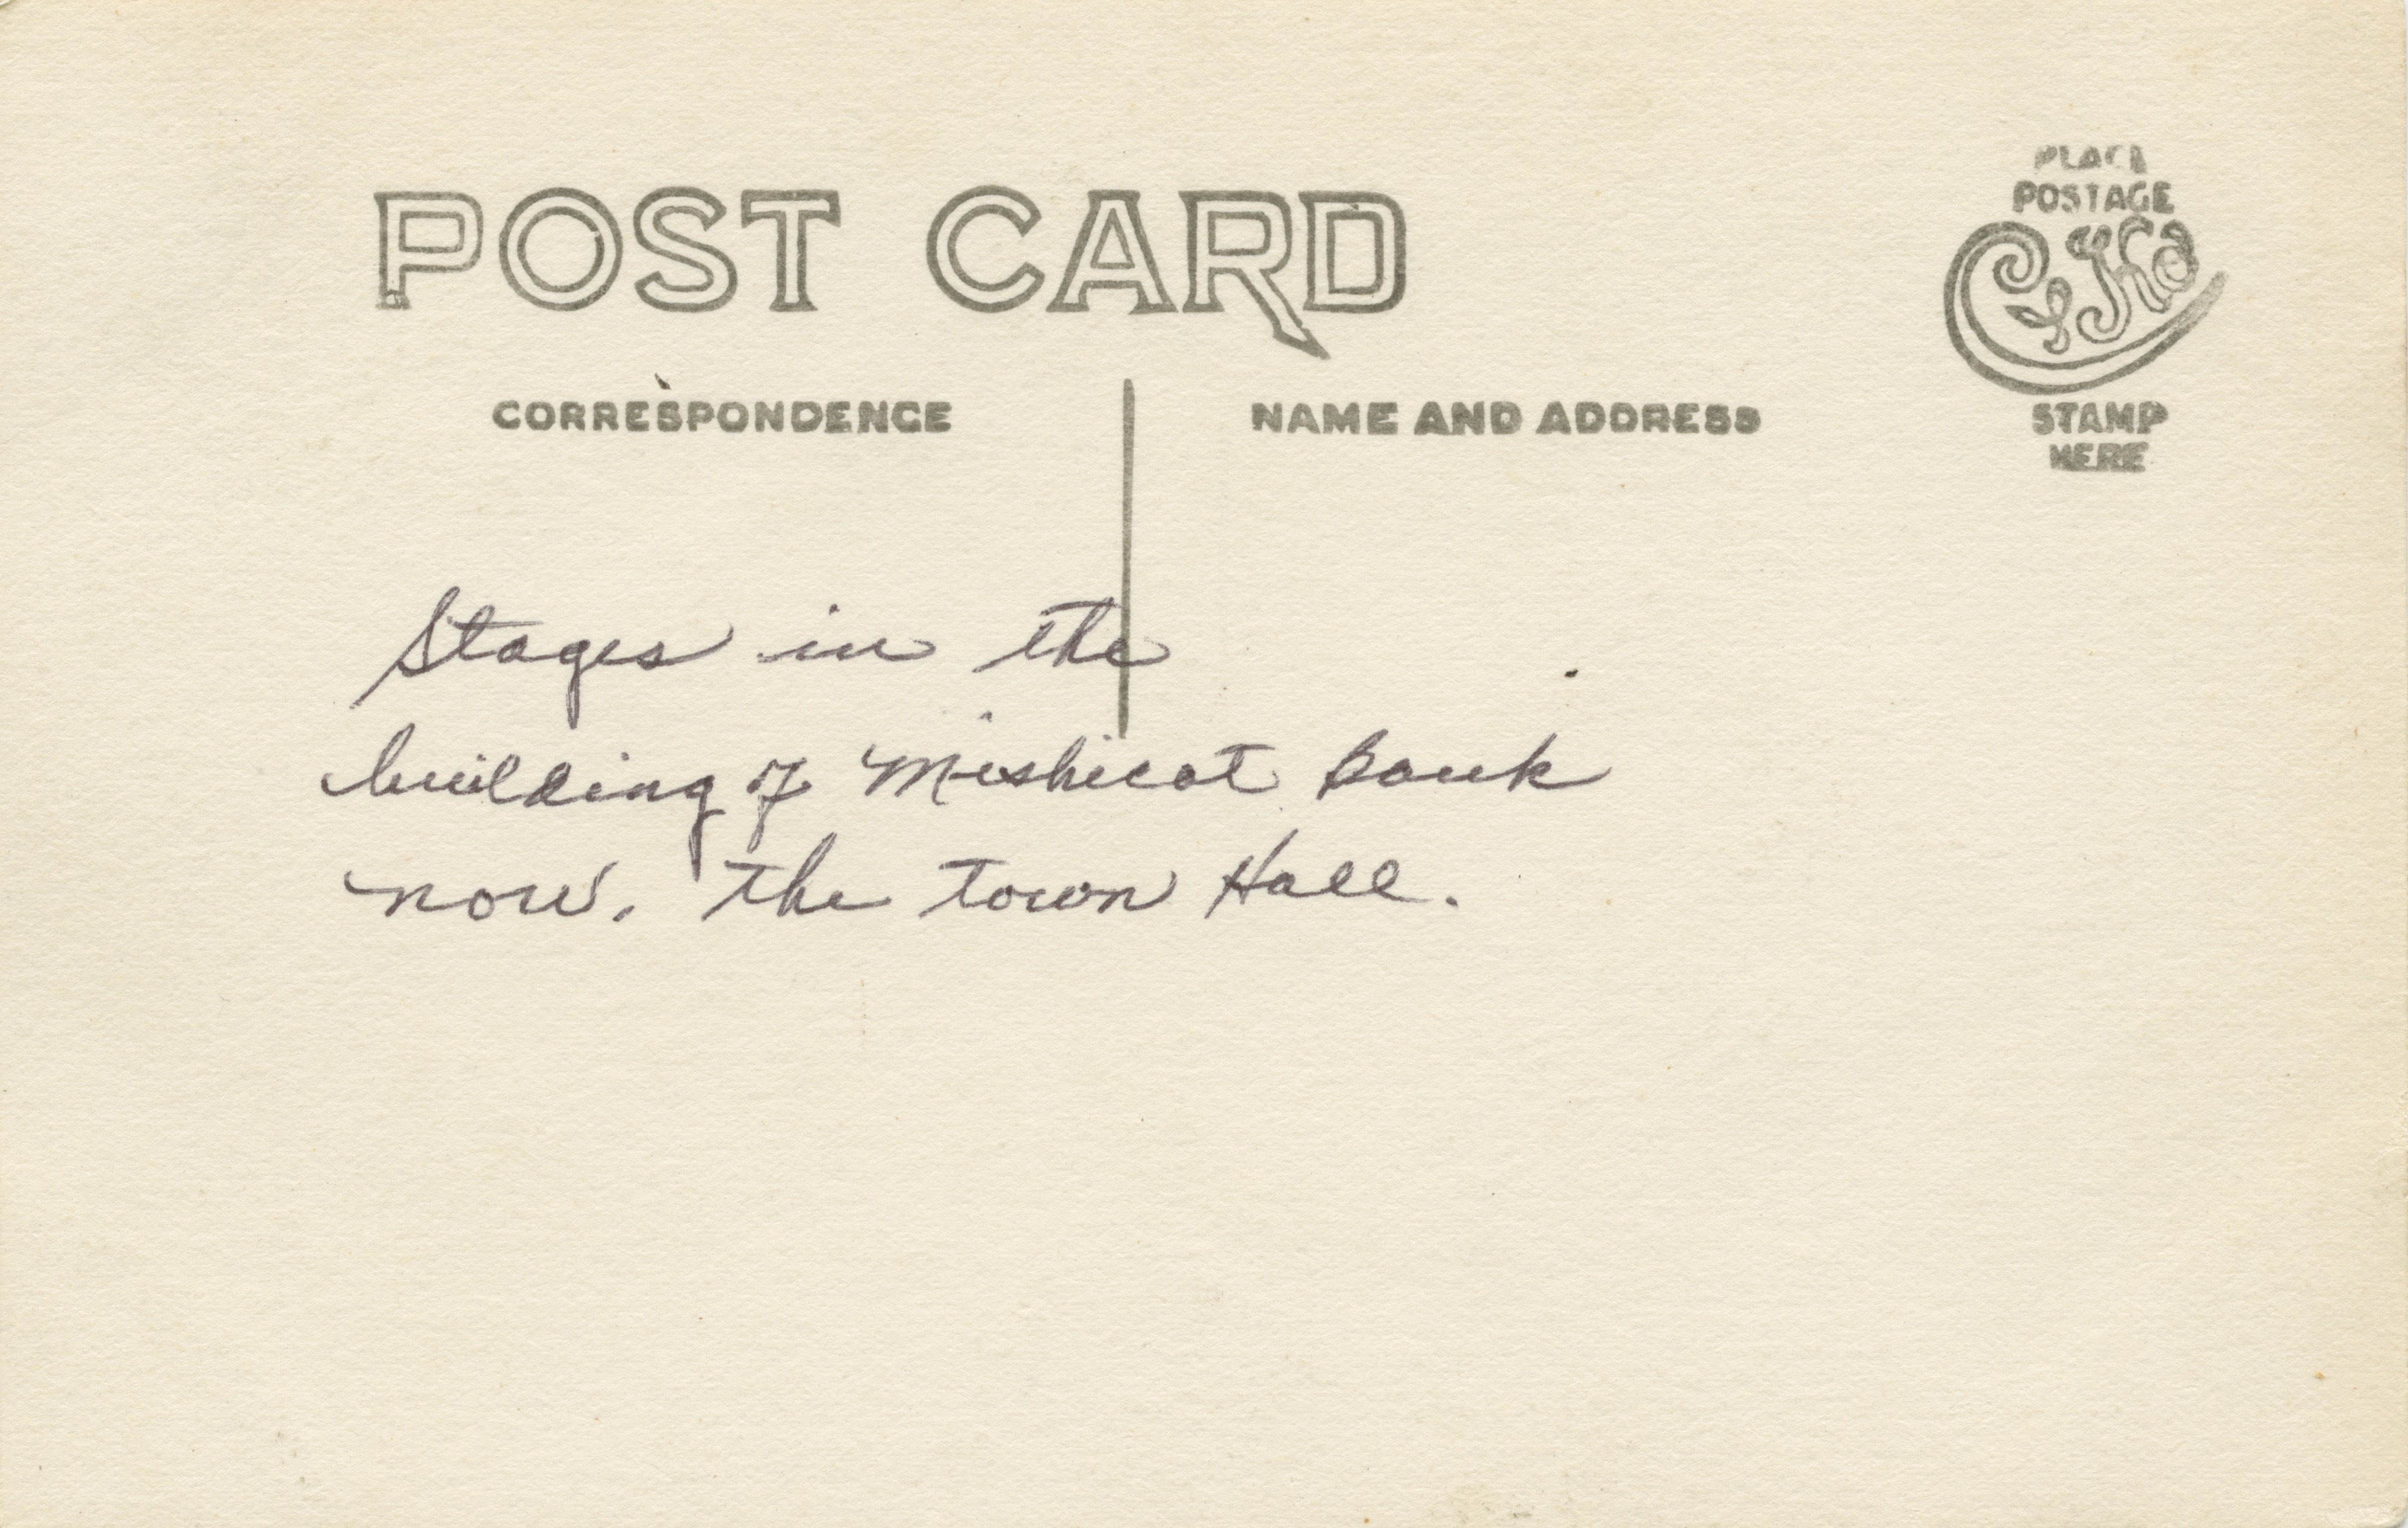 POST CARD
CORRESPONDENCE
NAME AND ADDRESS
PLACE
POSTAGE
STAMP
HERE
Stages in the
building of Mishicot Bank
now. the town Hall.